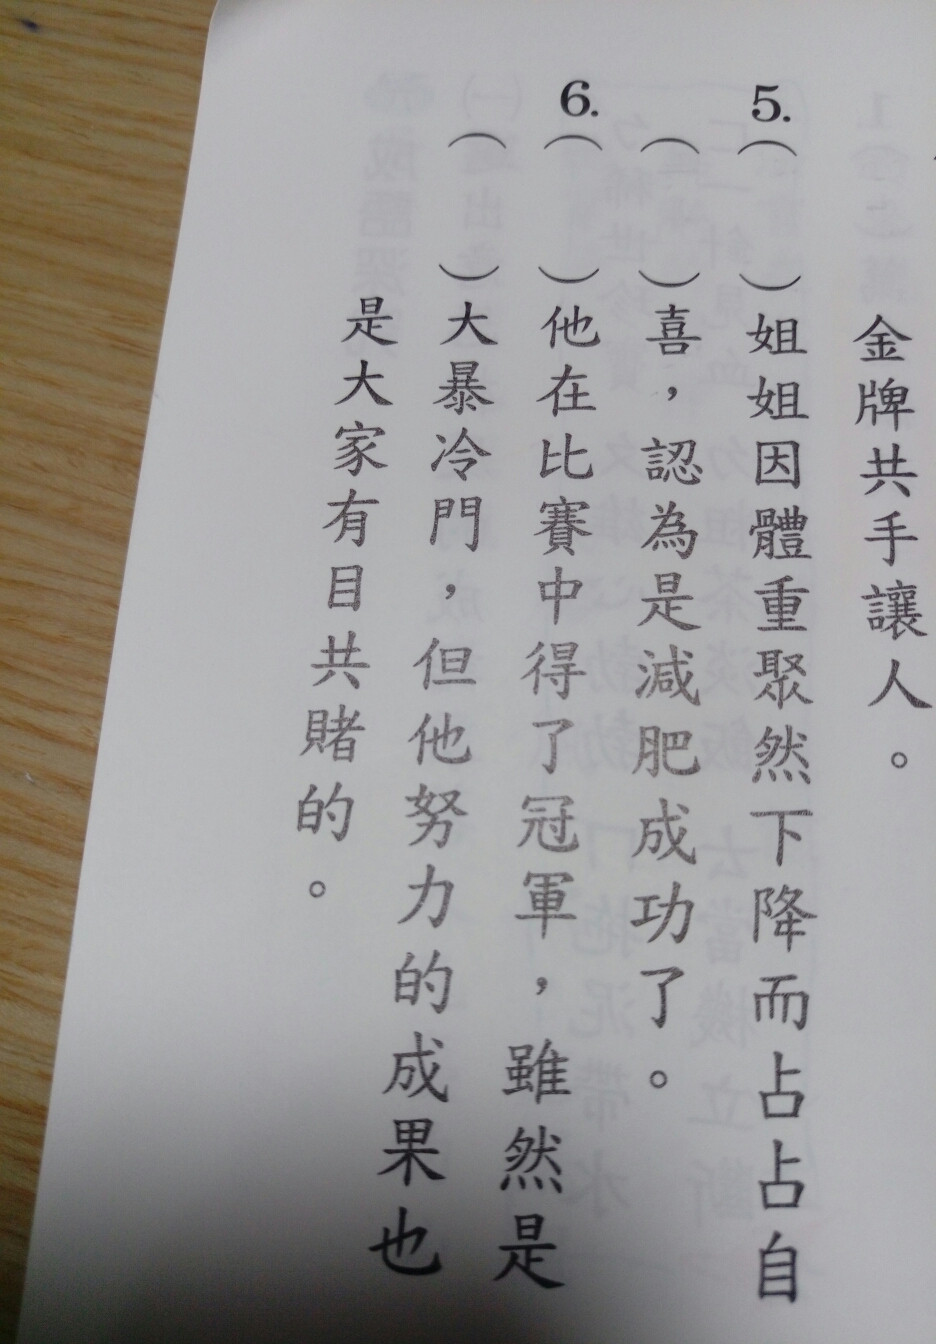 金牌共手讓人。
5.（　）姐姐因體重聚然下降而占占自
（　）喜，認為是減肥成功了。
6.（　）他在比賽中得了冠軍，雖然是
（　）大暴冷門，但他努力的成果也
是大家有目共賭的。